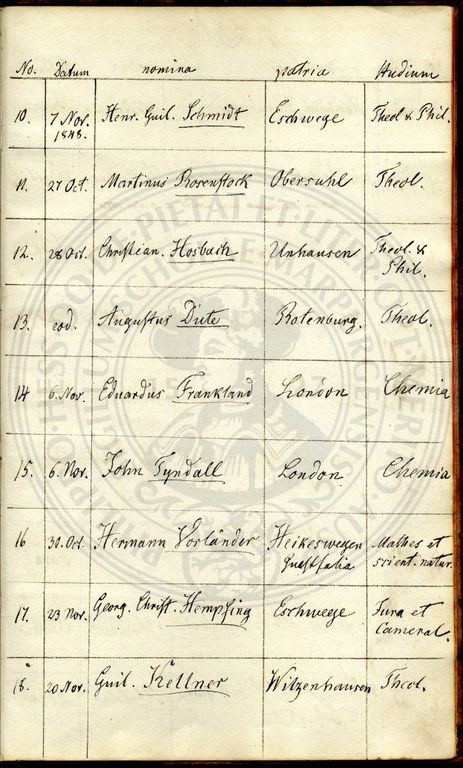 No. Datum nomina patria studium
10. 7 Nov. 1848. Henr. Guil. Schmidt Eschwege Theol & Phil.
11. 27 Oct. Martinus Rosenstock Obersuhl Theol.
12. 28 Oct. Christian. Hosbach Unhausen Theol. &
Phil.
13. eod. Augustus Dute Rotenburg. Theol.
14 6. Nov. Eduardus Frankland London Chemia
15. 6. Nov. John Tyndall London Chemia
16 30. Oct. Hermann Vorländer Mathes et
Guestfalia scient. natur.
17. 23 Nov. Georg. Christ. Hempfing Eschwege Jura et
Cameral.
18. 20 Nov. Guil. Kellner Witzenhausen Theol.